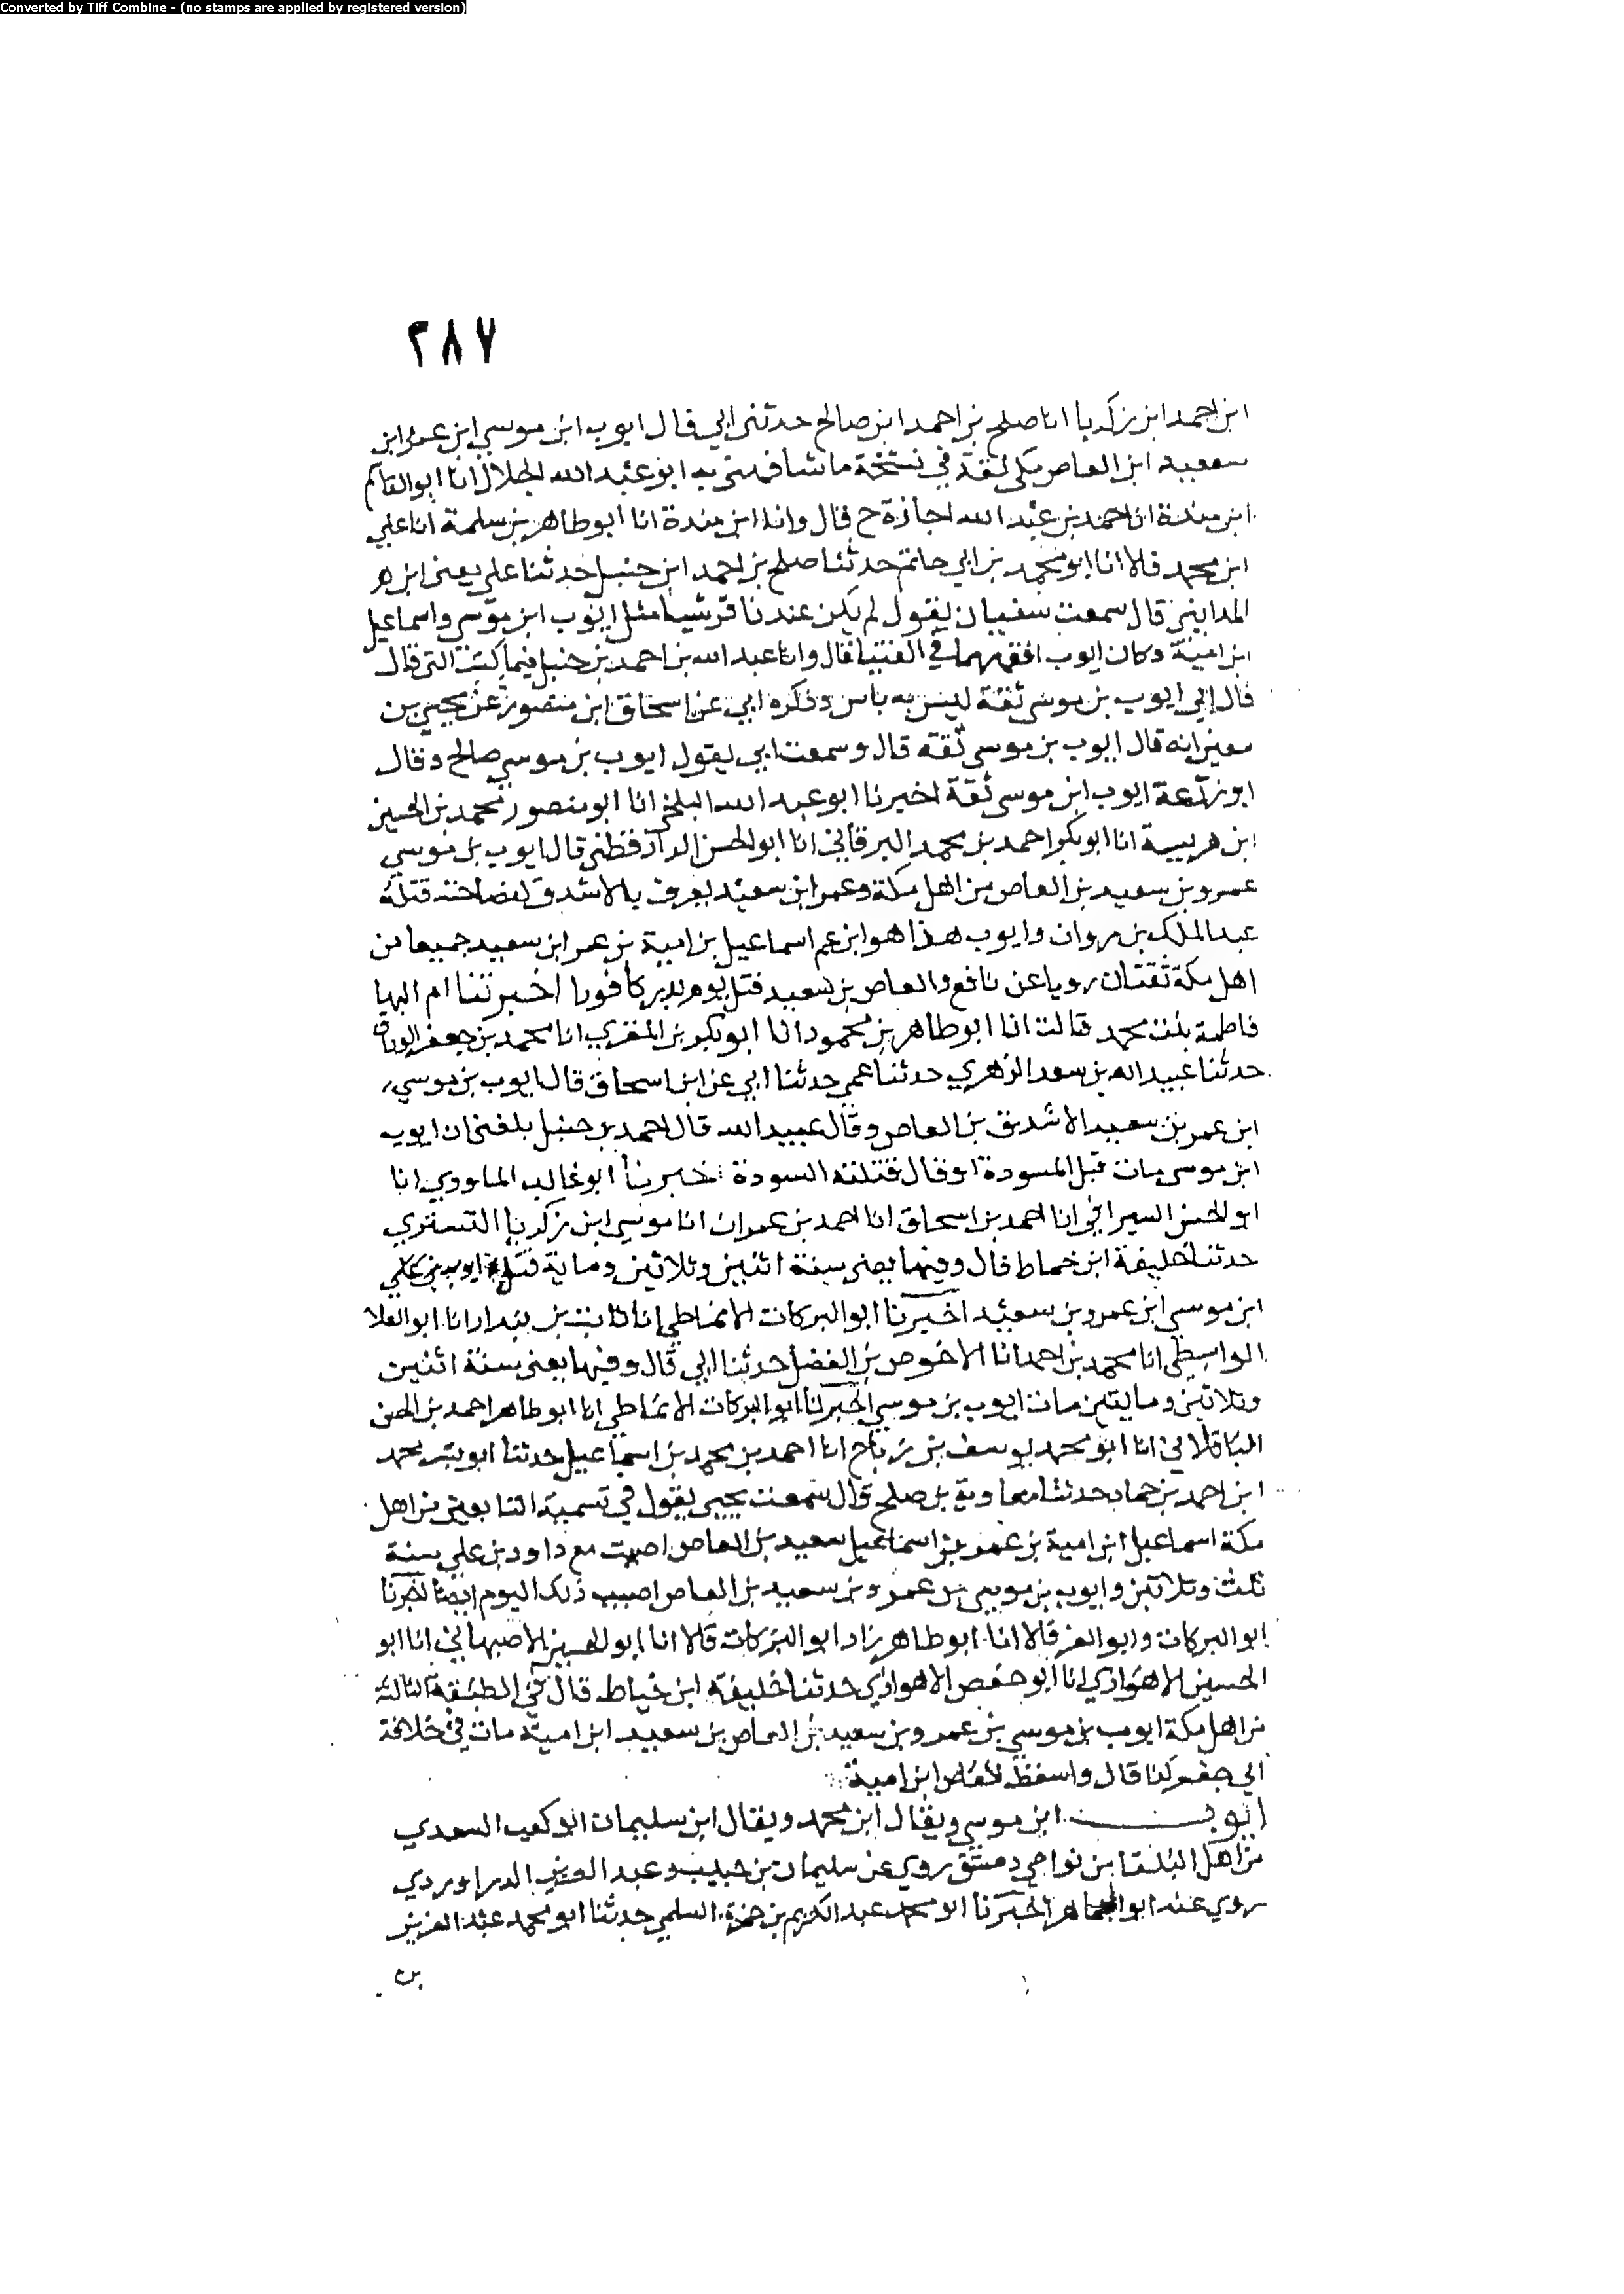 Converted by Tiff Combine - (no stamps are applied by registered version)
٢٨٧
ابن احمد ابن زكريا انا صلح بن احمد ابن صالح حدثني ابي قال ايوب ابن موسي ابن عمرو ابن
سعيد ابن العاص مكي ثقة في نسخة ما شافهني به ابو عبد الله الخلال انا ابو القاسم
ابن مندة انا حمد بن عبد الله اجازة ح قال وانا ابن مندة انا ابو طاهر بن سلمة انا علي
ابن محمد قالا انا ابو محمد بن ابي حاتم حدثنا صلح بن احمد ابن حنبل حدثنا علي يعني ابن
المديني قال سمعت سفيان يقول لم يكن عندنا قرشيا مثل ايوب ابن موسي واسماعيل
ابن امية وكان ايوب افقههما في الفتيا قال وانا عبد الله بن احمد بن حنبل فيما كتب الي قال
قال ابي ايوب بن موسى ثقة ليس به باس وذكره ابي عن اسحاق ابن منصور عن يحيي بن
معين انه قال ايوب بن موسي ثقة قال وسمعت ابي يقول ايوب بن موسي صالح وقال
ابو زرعة ايوب ابن موسى ثقة اخبرنا ابو عبد الله البلخي انا ابو منصور محمد بن الحسين
ابن هريسة انا ابو بكر احمد بن محمد البرقاني انا ابو الحسن الدارقطني قال ايوب بن موسي
عمرو بن سعيد بن العاص من اهل مكة وعمر ابن سعيد يعرف بالاشدق لفصاحته قتله
عبد الملك بن مروان وايوب هذا هو ابن عم اسماعيل بن امية بن عمر ابن سعيد جميعا من
اهل مكة ثقتان رويا عن نافع والعاص بن سعيد قتل يوم بدر كافورا اخبرتنا ام البها
فاطمة بنت محمد قالت انا ابو طاهر بن محمود انا ابو بكر بن المقري انا محمد بن جعفر الوراق
حدثنا عبيد الله بن سعد الزهري حدثنا عمي حدثنا ابي عن ابن اسحاق قال ايوب بن موسي
ابن عمر بن سعيد الاشدق بن العاص وقال عبيد الله قال احمد بن حنبل بلغني ان ايوب
ابن موسي مات قبل المسودة او قال قتلته السودة اخبرنا ابو غالب الماوردي انا
ابو الحسن السيرافي انا احمد بن اسحاق انا احمد بن عمران انا موسي ابن زكريا التستري
حدثنا خليفة ابن خياط قال وفيها يعني سنة اثنين وثلاثين وماية قتل ايوب بن علي
ابن موسي ابن عمرو بن سعيد اخبرنا ابو البركات الانماطي انا ثابت بن بندار انا ابو العلا
الواسطي انا محمد بن احمد انا الاحوص بن الفضل حدثنا ابي قال وفيها يعني سنة اثنين
وثلاثين ومايتين مات ايوب بن موسي اخبرنا ابو البركات الانماطي انا ابو طاهر احمد بن الحسن
الباقلاني انا ابو محمد يوسف بن رباح انا احمد بن محمد بن اسماعيل حدثنا ابو بشر محمد
ابن احمد بن حماد حدثنا معاوية بن صلح قال سمعت يحيى يقول في تسمية التابعين من اهل
مكة اسماعيل ابن امية بن عمر بن اسماعيل سعيد بن العاص اصيب مع داود بن علي سنة
ثلث وثلاثين وايوب بن موسي بن عمرو بن سعيد بن العاص اصيب ذلك اليوم ايضا اخبرنا
ابو البركات وابو العز قالا انا ابو طاهر زاد ابو البركات قالا انا ابو الحسين الاصبهاني انا ابو
الحسين الاهوازي انا ابو حفص الاهوازي حدثنا خليفة ابن خياط قال في الطبقة الثالثة
من اهل مكة ايوب بن موسي بن عمرو بن سعيد بن العاص بن سعيد ابن امية مات في خلافة
ابي جعفر كذا قال واسقط العاص ابن امية
ايوب ابن موسي ويقال ابن محمد ويقال ابن سليمان ابو كعب السعدي
من اهل البلقا من نواحي دمشق روي عن سليمان بن حبيب وعبد العزيز الدراوردي
روي عنه ابو الجماهر اخبرنا ابو محمد عبد الكريم بن حمزة السلمي حدثنا ابو محمد عبد العزيز
بن